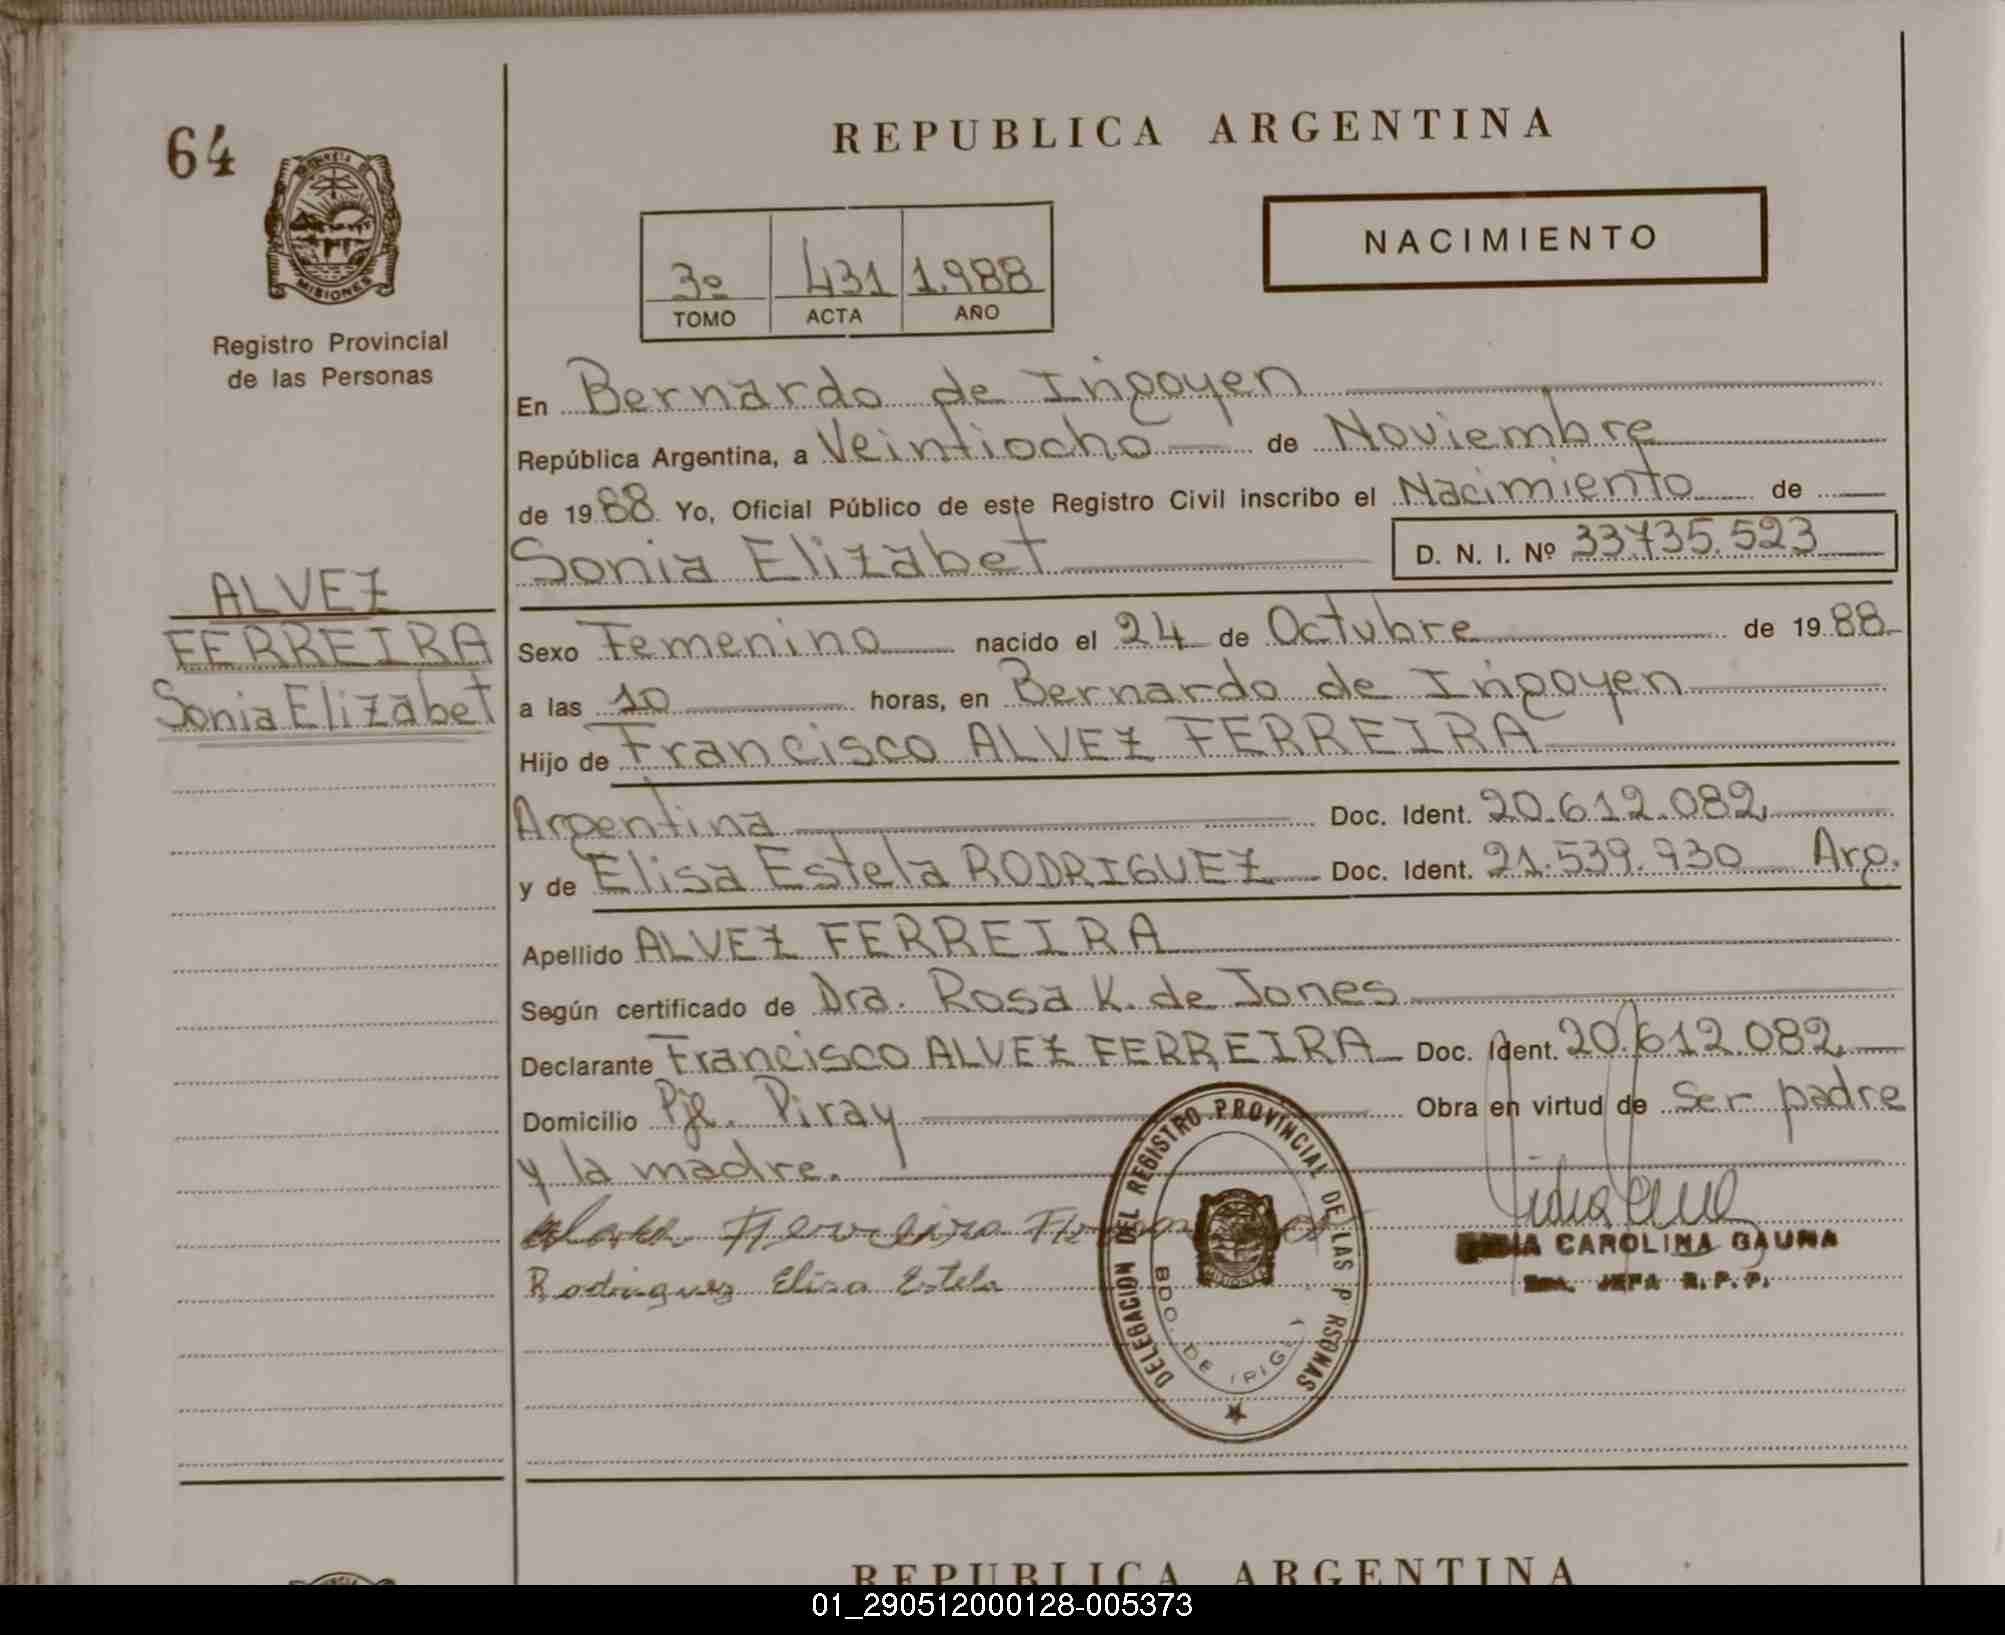 64
REPUBLICA ARGENTINA
NACIMIENTO
3º 431 1.988
TOMO ACTA AÑO
MISIONES
Registro Provincial
de las Personas
En Bernardo de Irigoyen
República Argentina, a Veintiocho de Noviembre
de 1988 Yo, Oficial Público de este Registro Civil inscribo el Nacimiento de
Sonia Elizabet D. N. I. Nº 33735.523
ALVEZ
FERREIRA
Sonia Elizabet
Sexo Femenino nacido el 24 de Octubre de 1988
a las 10 horas, en Bernardo de Irigoyen
Hijo de Francisco ALVEZ FERREIRA
Argentina Doc. Ident. 20.612.082
y de Elisa Estela RODRIGUEZ Doc. Ident. 21.539.930 Arg.
Apellido ALVEZ FERREIRA
Según certificado de Dra. Rosa K. de Jones
Declarante Francisco ALVEZ FERREIRA Doc. Ident. 20.612.082
Domicilio Pje. Piray Obra en virtud de ser padre
y la madre.
Ferreira
Rodriguez Elisa Estela
DELEGACION DEL REGISTRO PROVINCIAL DE LAS P RSONAS
BDO. DE IRIG
CAROLINA GAUNA
JEFA R.P.P.
REPUBLICA ARGENTINA
01_290512000128-005373